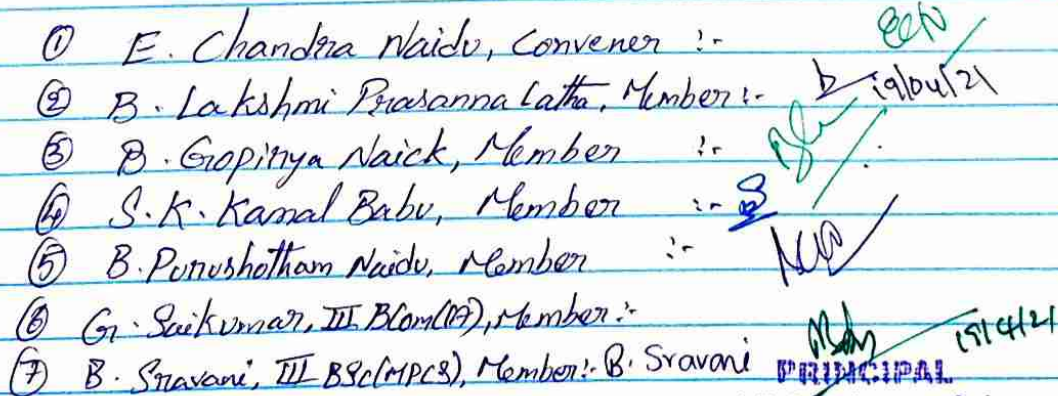 ① E. Chandra Naidu, Convener :-
② B. Lakshmi Prasanna Latha, Member :- 19/04/21
③ B. Gopinya Naick, Member :-
④ S. K. Kamal Babu, Member :-
⑤ B. Purushotham Naidu, Member :-
⑥ G. Saikumar, III BCom(CA), Member :-
⑦ B. Sravani, III BSc(MPCS), Member :- B. Sravani 19/4/21
PRINCIPAL